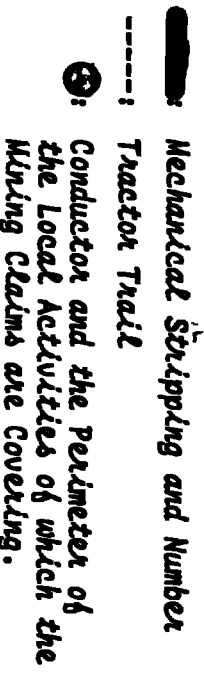 : Mechanical Stripping and Number
-----: Tractor Trail
: Conductor and the Perimeter of
the Local Activities of which the
Mining Claims are Covering.